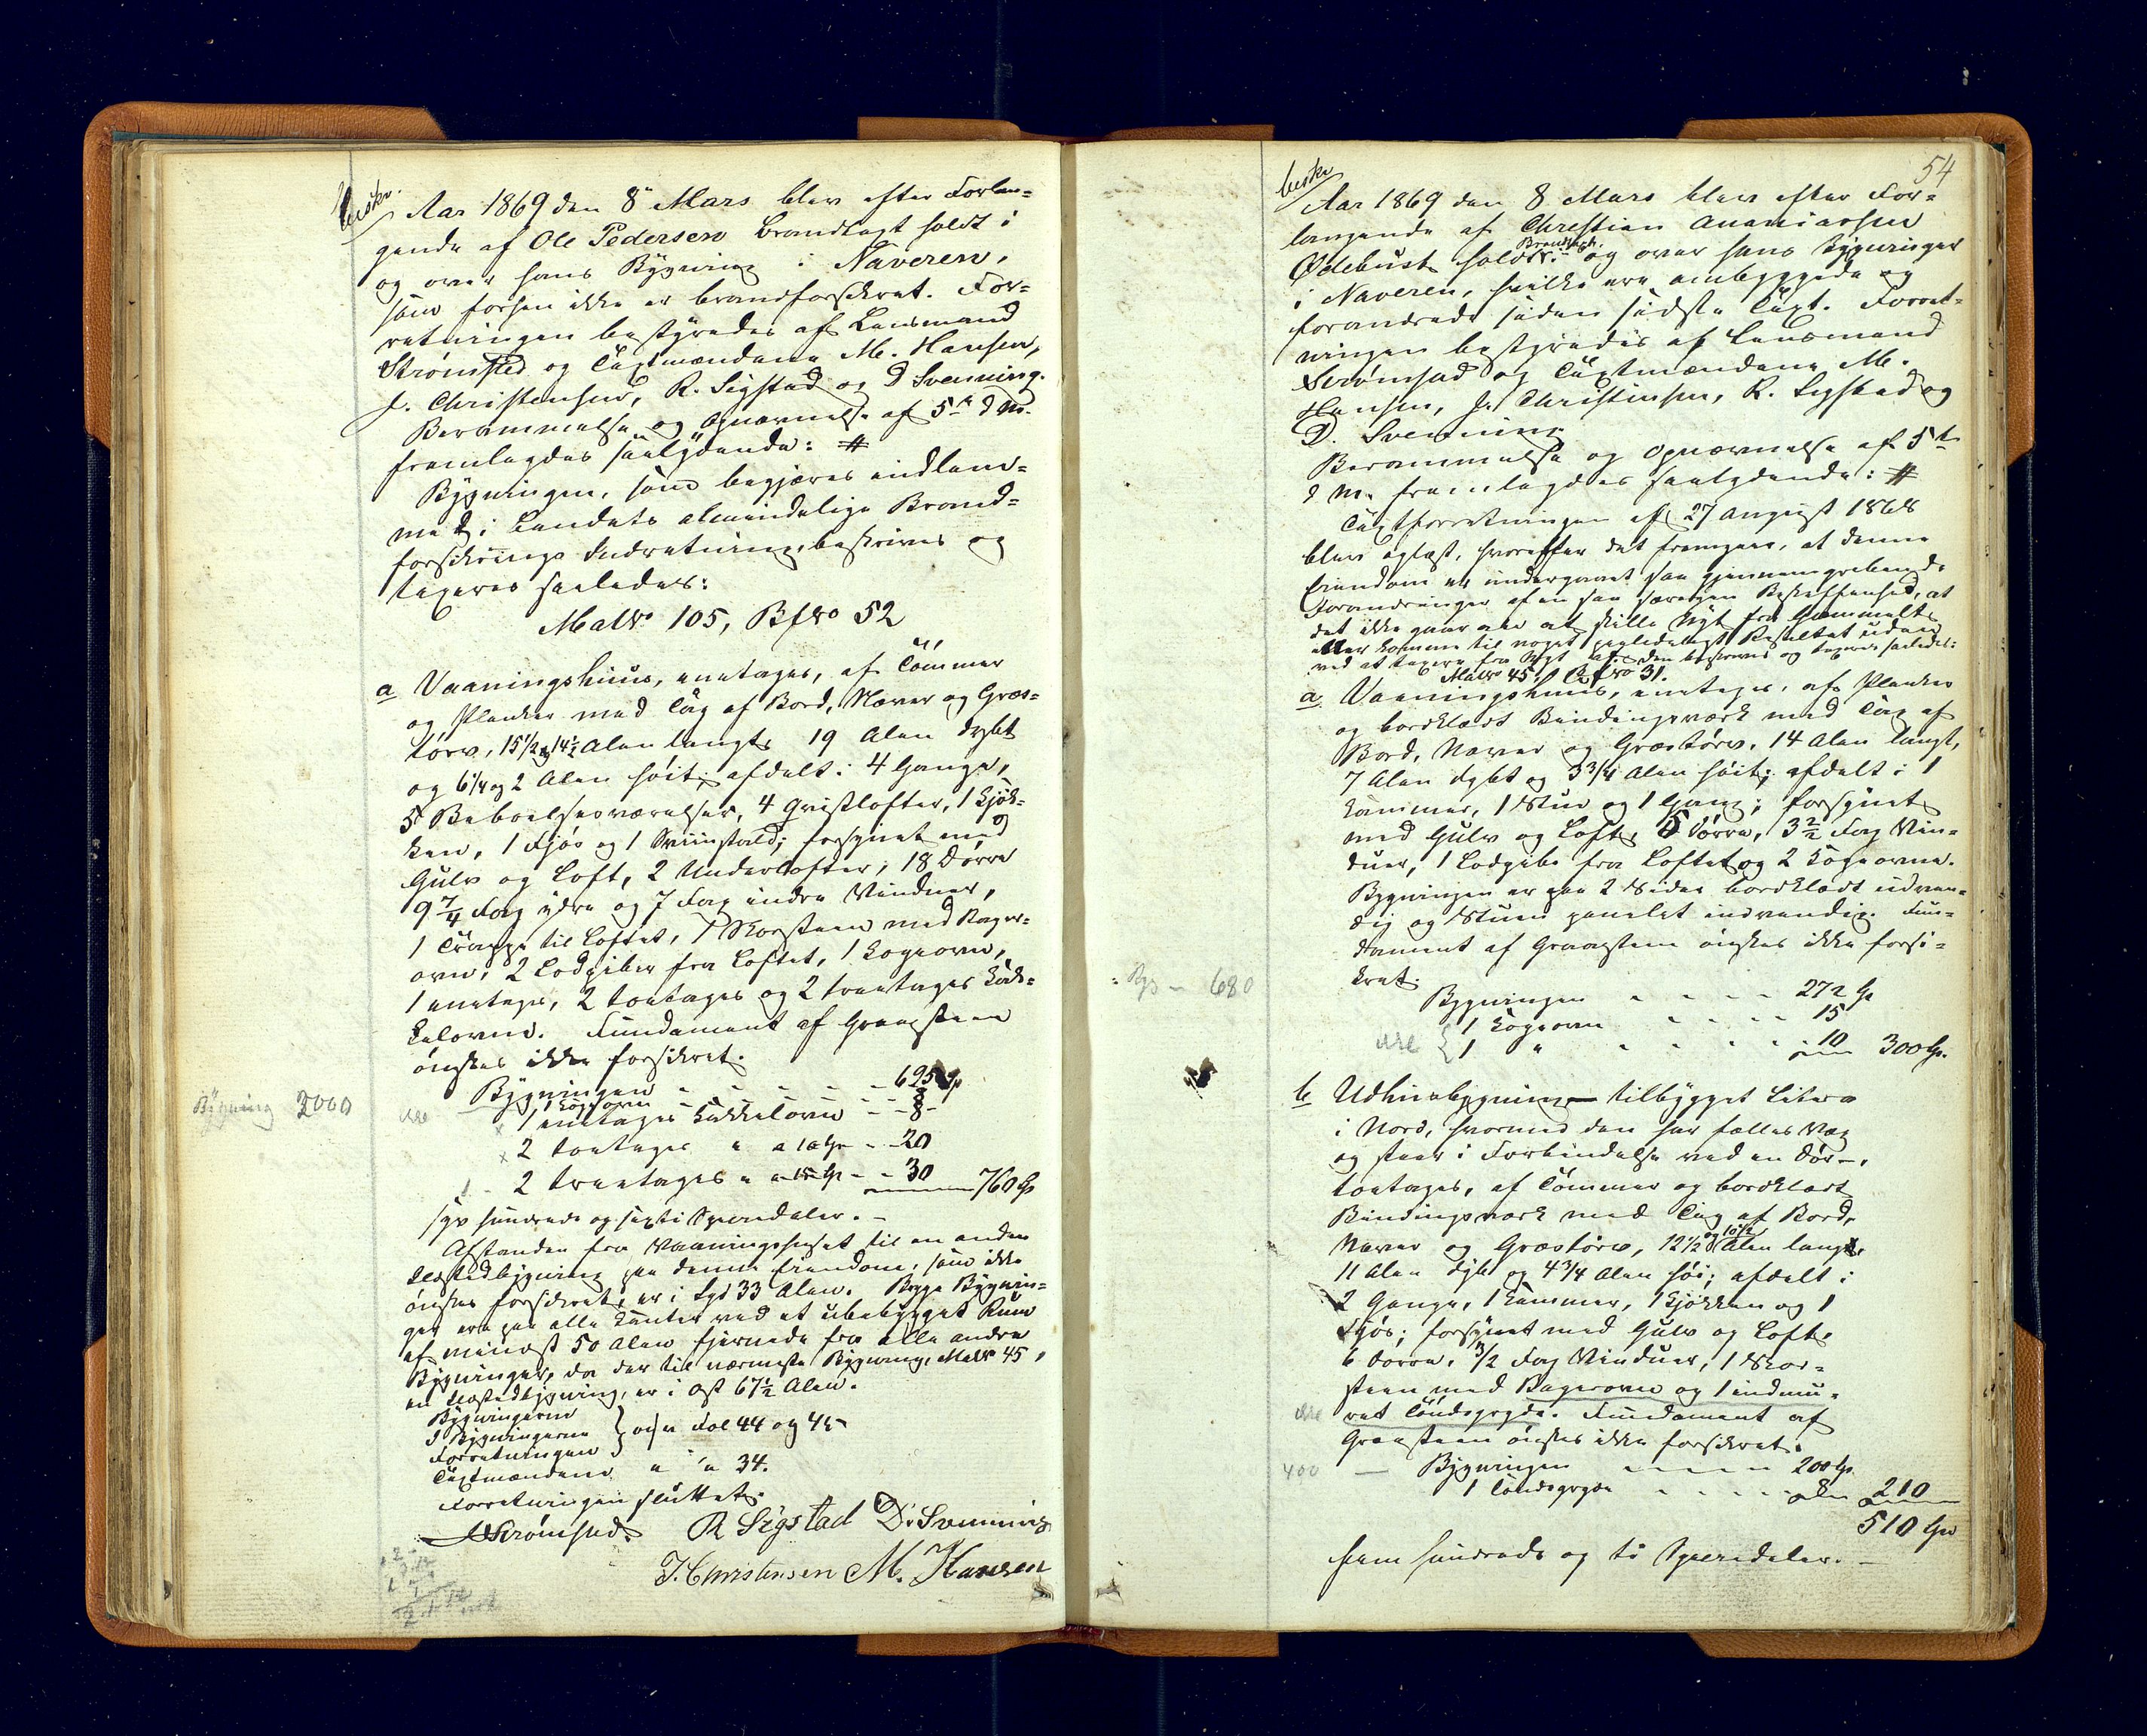 beskr.
Aar 1869 den 8de Mars blev efter Forlan-
gende af Ole Pedersen Brandtagt holdt i
og over hans Bygning i Naveren,
som forhen ikke er brandforsikret. For-
retningen bestyredes af Lensmand
Strömsted og Taxtmændene M. Hansen,
J. Christensen, R. Sigstad og D Svenning.
Berammelse og Opnævnelse af 5te d M.
fremlagdes saalydende: #
Bygningen, som begjæres indlem-
med i Landets almindelige Brand-
forsikrings Indretning, beskrives og
taxeres saaledes:
MatNo 105, BfNo 52
a Vaaningshuus, eenetages, af Tömmer
og Planker med Tag af Bord, Næver og Græs-
törv, 15 1/2 og 14 1/2 Alen langt, 19 Alen dybt
og 6 1/4 og 2 Alen höit; afdelt i 4 Gange,
5 Beboelsesværelser, 4 Qvistlofter, 1 Kjök-
ken, 1 Fjös og 1 Sviinstald; forsynet med
Gulv og Loft, 2 Underlofter, 18 Dörre
9 7/4 Fag ydre og 7 Fag indre Vinduer,
1 Trappe til Loftet, 1 Skorsteen med Bager-
ovn, 2 Lodpiber fra Loftet, 1 Kogeovn,
1 eenetages, 2 toetages og 2 treetages Kak-
kelovne. Fundament af Graasteen
önskes ikke forsikret.
Bygningen - - - - 695 Sp
1 Kogeovn
1 eenetages Kakkelovn - - 8 -
2 toetages " a 10 Sp - - 20
2 treetages " a 15 Sp - - 30 760 Sp
syv hundrede og sexti Speciedaler. -
Bygning 2000
Afstanden fra Vaaningshuset til en anden
Ildstedbygning paa denne Eiendom, som ikke
önskes forsikret, er i Syd 33 Alen. Begge Bygnin-
ger ere paa alle Kanter ved et ubebygget Rum
af mindst 50 Alen fjernede fra alle andre
Bygninger, da der til nærmeste Bygning, MatNo 45,
en Ildstedbygning, er i Öst 67 1/2 Alen.
Bygningerne
I Bygningerne
Forretningen } vide Fol 44 og 45
Taxtmændene " " 34.
Forretningen sluttet.
Strömsted. R Sigstad D. Svenning
J. Christensen M. Hansen
54
beskr
Aar 1869 den 8 Mars blev efter For-
langende af Christian Ananiassen
Ødebust holdt Brandtagt. i og over hans Bygninger
i Naveren, hvilke ere ombyggede og
forandrede siden sidste Taxt. Forret-
ningen bestyredes af Lensmand
Strömsted og Taxtmændene M.
Hansen, J. Christensen, R. Sigstad og
D. Svenning
Berammelse og Opnævnelse af 5te
d M. fremlagdes saalydende: #
Taxtforretningen af 27 August 1868
blev oplæst, hvorefter det fremgaar, at denne
Eiendom er undergaaet saa gjennemgribende
Forandringer af en saa særegen Beskaffenhed, at
det ikke gaar an at skille Nyt fra Gammelt
eller komme til noget paalideligt Resultat uden
ved at taxere fra Nyt af. Den beskrives og taxeres saaledes:
MatNo 45, BfNo 31.
a Vaaningshuus, eenetages, af Planker
og bordklædt Bindingsværk med Tag af
Bord, Næver og Græstörv, 14 Alen langt,
7 Alen dybt og 3 3/4 Alen höit; afdelt i 1
Kammer, 1 Stue og 1 Gang; forsynet
med Gulv og Loft, 5 Dörre, 3 2/2 Fag Vin-
duer, 1 Lodpibe fra Loftet og 2 Kogeovne.
Bygningen er paa 2 Sider bordklædt udven-
dig og Stuen panelet indvendig. Fun-
dament af Graasteen önskes ikke forsi-
kret.
Bygningen - - - - 272 Sp
1 Kogeovn - - - - 15
1 " - - - - 10 300 Sp.
Bgs - 680
b Udhuusbygning tilbygget Litera a
i Nord, hvormed den har fælles Væg
og staar i Forbindelse ved en Dör -,
toetages, af Tömmer og bordklædt
Bindingsværk med Tag af Bord,
Næver og Græstörv, 12 1/2 og 10 1/2 Alen langt,
11 Alen dyb og 4 3/4 Alen höi; afdelt i
2 Gange, 1 Kammer, 1 Kjökken og 1
Fjös; forsynet med Gulv og Loft,
6 Dörre, 3/2 Fag Vinduer, 1 Skor-
steen med Bagerovn og 1 indmu-
ret Töndegryde. Fundament af
Graasteen önskes ikke forsikret.
400 - Bygningen - - - - 200 Sp
1 Töndegryde - - - - 210
510 Sp
fem hundrede og ti Speciedaler. -